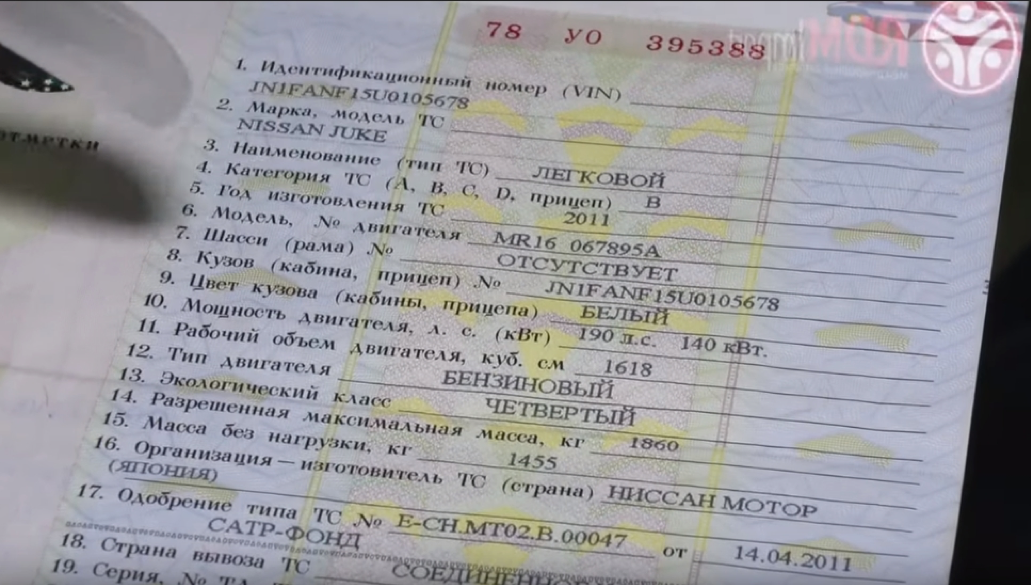 78 УО 395388
отметки
1. Идентификационный номер (VIN)
JN1FANF15U0105678
2. Марка, модель ТС
NISSAN JUKE
3. Наименование (тип ТС) ЛЕГКОВОЙ
4. Категория ТС (A, B, C, D, прицеп) B
5. Год изготовления ТС 2011
6. Модель, № двигателя MR16 067895A
7. Шасси (рама) № ОТСУТСТВУЕТ
8. Кузов (кабина, прицеп) № JN1FANF15U0105678
9. Цвет кузова (кабины, прицепа) БЕЛЫЙ
10. Мощность двигателя, л. с. (кВт) 190 л.с. 140 кВт.
11. Рабочий объем двигателя, куб. см 1618
12. Тип двигателя БЕНЗИНОВЫЙ
13. Экологический класс ЧЕТВЕРТЫЙ
14. Разрешенная максимальная масса, кг 1860
15. Масса без нагрузки, кг 1455
16. Организация — изготовитель ТС (страна) НИССАН МОТОР
(ЯПОНИЯ)
17. Одобрение типа ТС № E-CH.MT02.B.00047 от 14.04.2011
САТР-ФОНД
18. Страна вывоза ТС
19. Серия, №